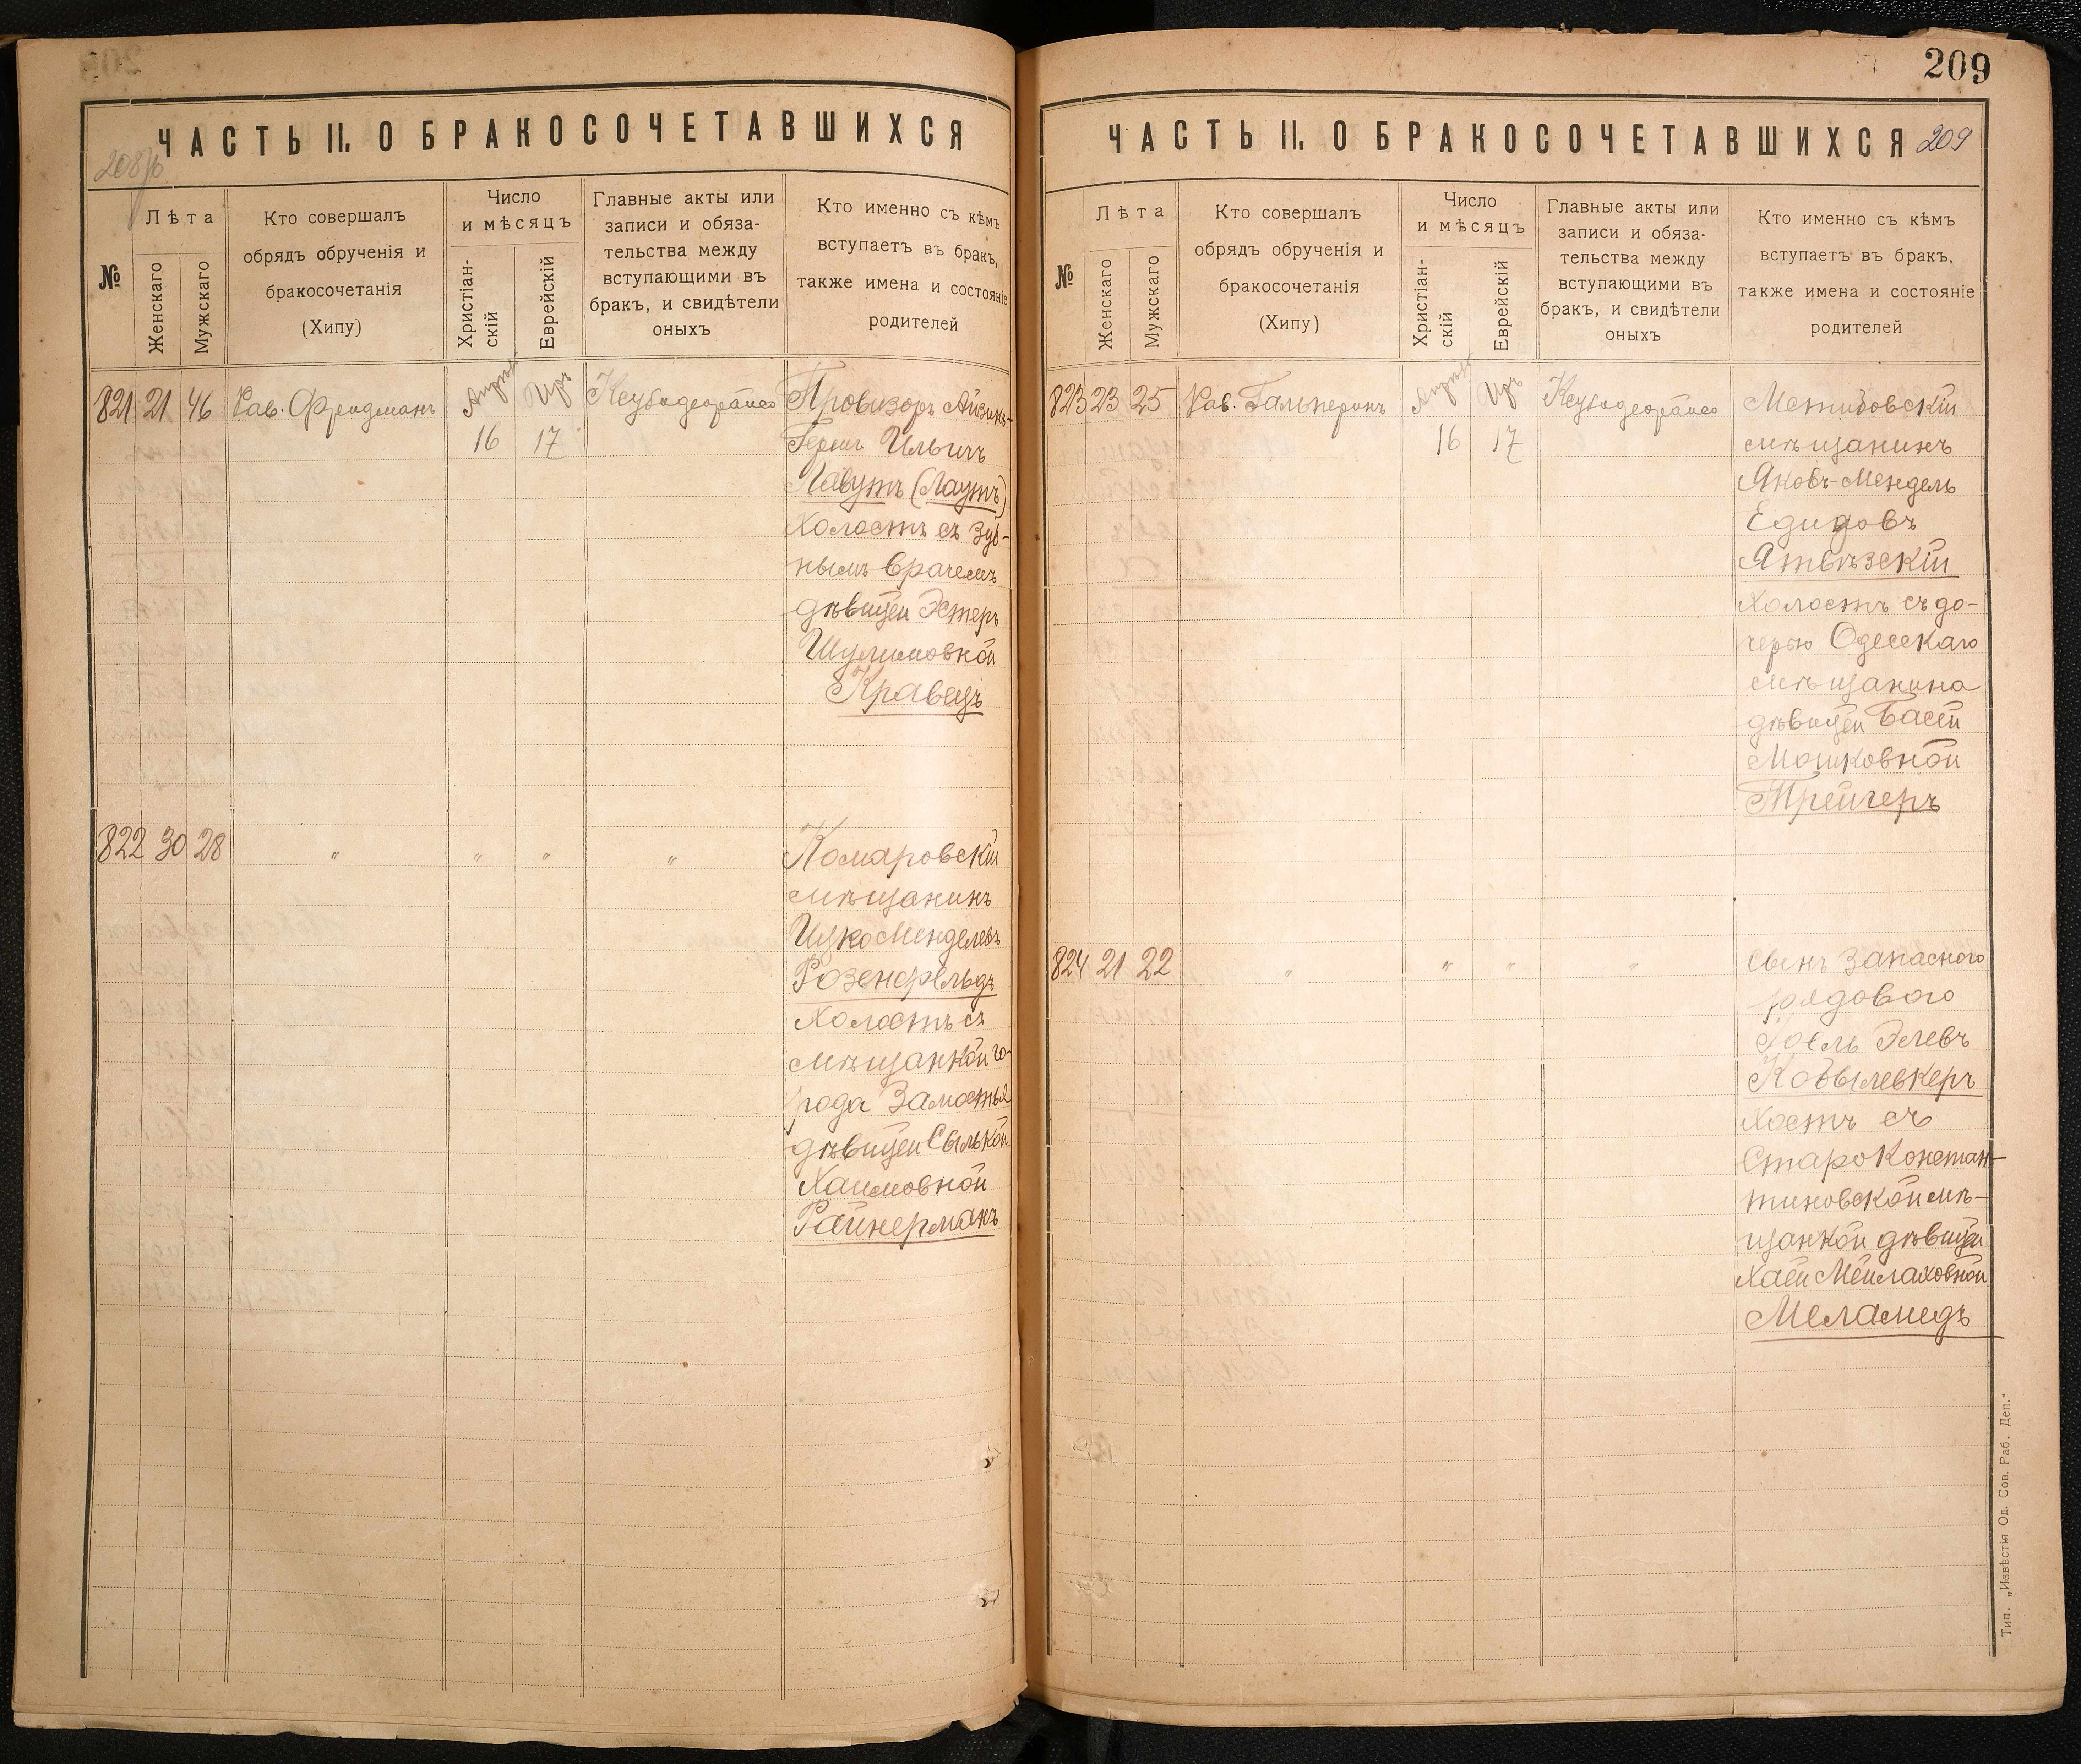 209
ЧАСТЬ II. О БРАКОСОЧЕТАВШИХСЯ
№
Лѣта
Женскаго
Мужскаго
Кто совершалъ
обрядъ обрученія и
бракосочетанія
(Хипу)
Число
и мѣсяцъ
Христіан-
скій
Еврейскій
Главные акты или
записи и обяза-
тельства между
вступающими въ
бракъ, и свидѣтели
оныхъ
Кто именно съ кѣмъ
вступаетъ въ бракъ,
также имена и состояніе
родителей
821 21 46 Рав. Фридманъ
16 17
Провизоръ Айзикъ-
Герш Ильичъ
Лавутъ (Лаутъ)
холостъ съ зуб-
нымъ врачемъ
дѣвицей Эстерь
Шулимовной
Кравецъ
822 30 28 " " " "
Комаровскій
мѣщанинъ
Ицко Менделевъ
Розенфельдъ
холостъ съ
мѣщанкой го-
рода Замостья
дѣвицей Сылькой
Хаимовной
Райнерманъ
ЧАСТЬ II. О БРАКОСОЧЕТАВШИХСЯ 209
№
Лѣта
Женскаго
Мужскаго
Кто совершалъ
обрядъ обрученія и
бракосочетанія
(Хипу)
Число
и мѣсяцъ
Христіан-
скій
Еврейскій
Главные акты или
записи и обяза-
тельства между
вступающими въ
бракъ, и свидѣтели
оныхъ
Кто именно съ кѣмъ
вступаетъ въ бракъ,
также имена и состояніе
родителей
823 23 25 Рав. Гальперинъ
16 17
мѣщанинъ
Яковъ-Мендель
Ятвѣзскій
холостъ съ до-
черью Одесскаго
мѣщанина
дѣвицей Басей
Мошковной
Трейгеръ
824 21 22 " " " "
Сынъ запасного
рядового
Элевъ
Кобылевкеръ
хостъ съ
Староконстан-
тиновской мѣ-
щанкой дѣвицей
Хаей Мейлаховной
Меламедъ
Тип. „Извѣстія Од. Сов. Раб. Деп."